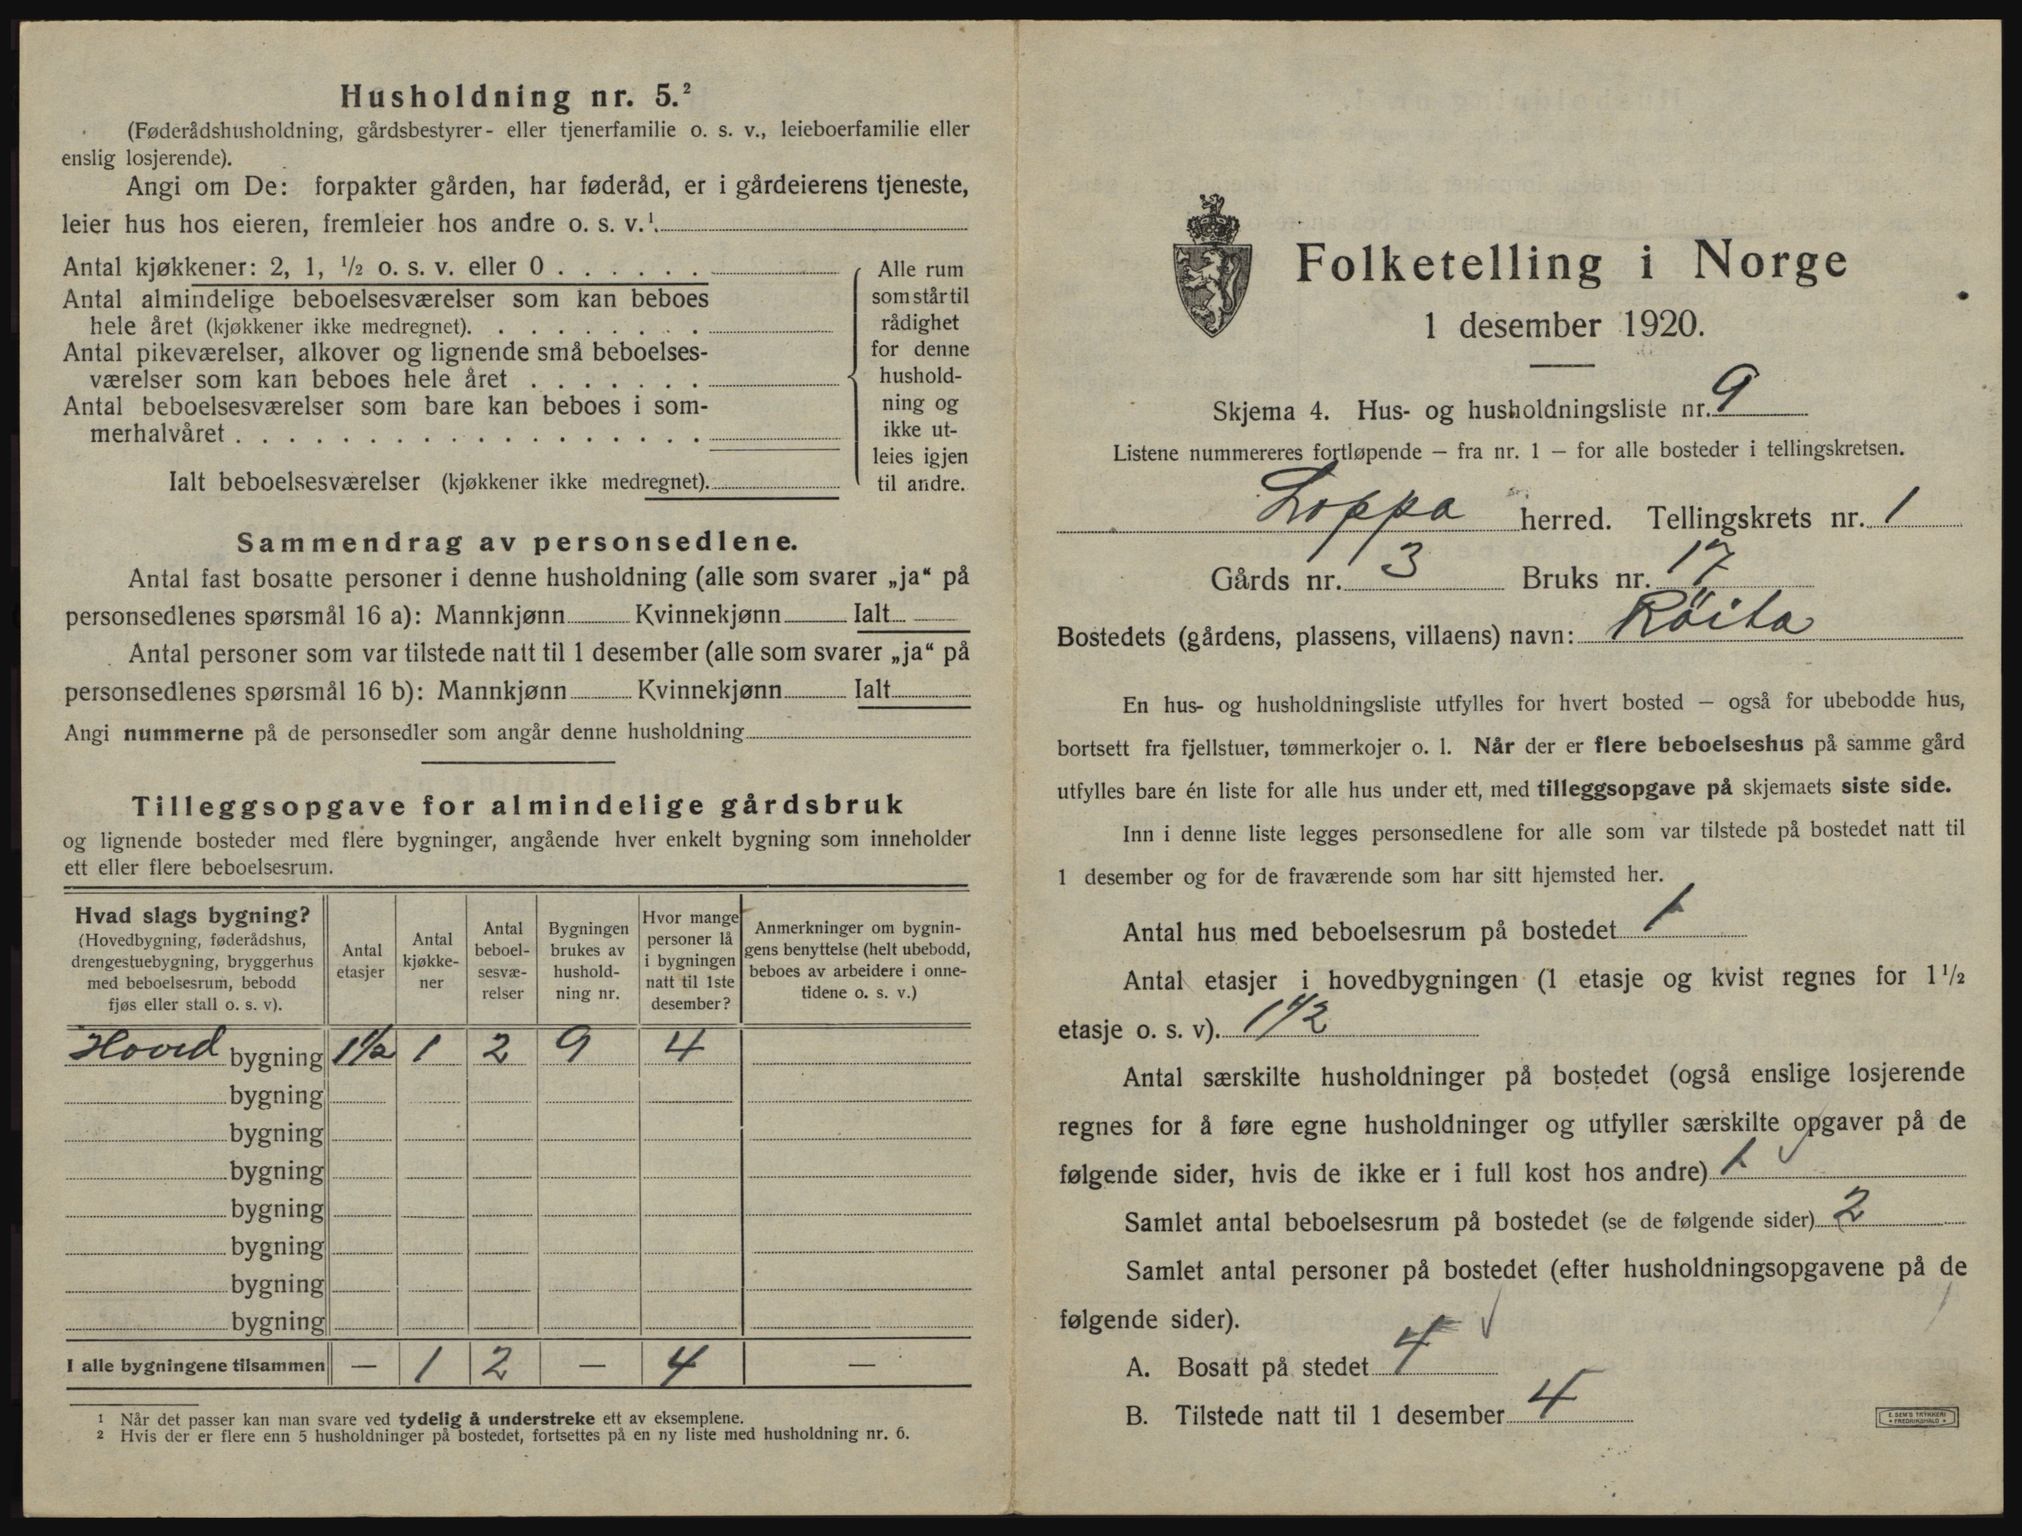 Husholdning nr. 5.²
(Føderådshusholdning, gårdsbestyrer- eller tjenerfamilie o. s. v., leieboerfamilie eller
enslig losjerende).
Angi om De: forpakter gården, har føderåd, er i gårdeierens tjeneste,
leier hus hos eieren, fremleier hos andre o. s. v.¹.
Antal kjøkkener: 2, 1, ½ o. s. v. eller 0 . . . . . .
Antal almindelige beboelsesværelser som kan beboes
hele året (kjøkkener ikke medregnet). . . . . . . . .
Antal pikeværelser, alkover og lignende små beboelses-
værelser som kan beboes hele året . . . . . . .
Antal beboelsesværelser som bare kan beboes i som-
merhalvåret . . . . . . . . . . . . . . . . . .
Ialt beboelsesværelser (kjøkkener ikke medregnet).
Alle rum
som står til
rådighet
for denne
hushold-
ning og
ikke ut-
leies igjen
til andre.
Sammendrag av personsedlene.
Antal fast bosatte personer i denne husholdning (alle som svarer „ja“ på
personsedlenes spørsmål 16 a): Mannkjønn Kvinnekjønn Ialt
Antal personer som var tilstede natt til 1 desember (alle som svarer „ja“ på
personsedlenes spørsmål 16 b): Mannkjønn Kvinnekjønn Ialt
Angi nummerne på de personsedler som angår denne husholdning
Tilleggsopgave for almindelige gårdsbruk
og lignende bosteder med flere bygninger, angående hver enkelt bygning som inneholder
ett eller flere beboelsesrum.
Hvad slags bygning?
(Hovedbygning, føderådshus,
drengestuebygning, bryggerhus
med beboelsesrum, bebodd
fjøs eller stall o. s. v).
Antal
etasjer
Antal
kjøkke-
ner
Antal
beboel-
sesvæ-
relser
Bygningen
brukes av
hushold-
ning nr.
Hvor mange
personer lå
i bygningen
natt til 1ste
desember?
Anmerkninger om bygnin-
gens benyttelse (helt ubebodd,
beboes av arbeidere i onne-
tidene o. s. v.)
Hoved bygning 1½ 1 2 9 4
bygning
bygning
bygning
bygning
bygning
bygning
bygning
I alle bygningene tilsammen — 1 2 — 4 —
¹ Når det passer kan man svare ved tydelig å understreke ett av eksemplene.
² Hvis der er flere enn 5 husholdninger på bostedet, fortsettes på en ny liste med husholdning nr. 6.
Folketelling i Norge
1 desember 1920.
Skjema 4. Hus- og husholdningsliste nr. 9
Listene nummereres fortløpende – fra nr. 1 – for alle bosteder i tellingskretsen.
Loppa herred. Tellingskrets nr. 1
Gårds nr. 3 Bruks nr. 17
Bostedets (gårdens, plassens, villaens) navn: Röita
En hus- og husholdningsliste utfylles for hvert bosted – også for ubebodde hus,
bortsett fra fjellstuer, tømmerkojer o. l. Når der er flere beboelseshus på samme gård
utfylles bare én liste for alle hus under ett, med tilleggsopgave på skjemaets siste side.
Inn i denne liste legges personsedlene for alle som var tilstede på bostedet natt til
1 desember og for de fraværende som har sitt hjemsted her.
Antal hus med beboelsesrum på bostedet 1
Antal etasjer i hovedbygningen (1 etasje og kvist regnes for 1½
etasje o. s. v). 1½
Antal særskilte husholdninger på bostedet (også enslige losjerende
regnes for å føre egne husholdninger og utfyller særskilte opgaver på de
følgende sider, hvis de ikke er i full kost hos andre) 1
Samlet antal beboelsesrum på bostedet (se de følgende sider) 2
Samlet antal personer på bostedet (efter husholdningsopgavene på de
følgende sider).
A. Bosatt på stedet 4
B. Tilstede natt til 1 desember 4
E. SEM'S TRYKKERI
FREDRIKSHALD